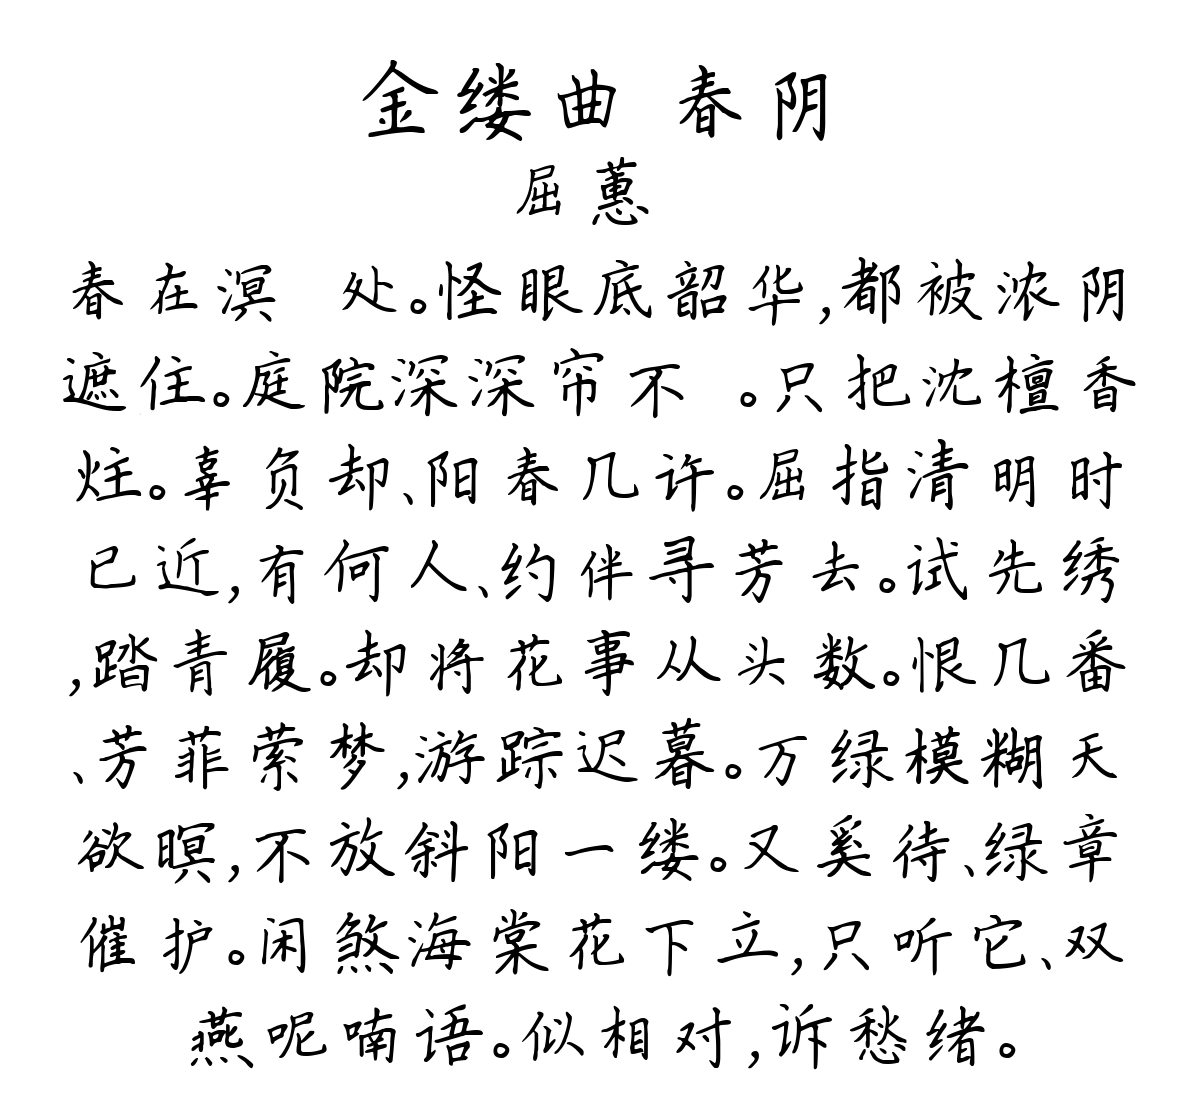 金缕曲 春阴
屈蕙
春在溟 处。怪眼底韶华,都被浓阴
遮住。庭院深深帘不 。只把沈檀香
炷。辜负却、阳春几许。屈指清明时
已近,有何人、约伴寻芳去。试先绣
,踏青履。却将花事从头数。恨几番
、芳菲萦梦,游踪迟暮。万绿模糊天
欲暝,不放斜阳一缕。又奚待、绿章
催护。闲煞海棠花下立,只听它、双
燕呢喃语。似相对,诉愁绪。